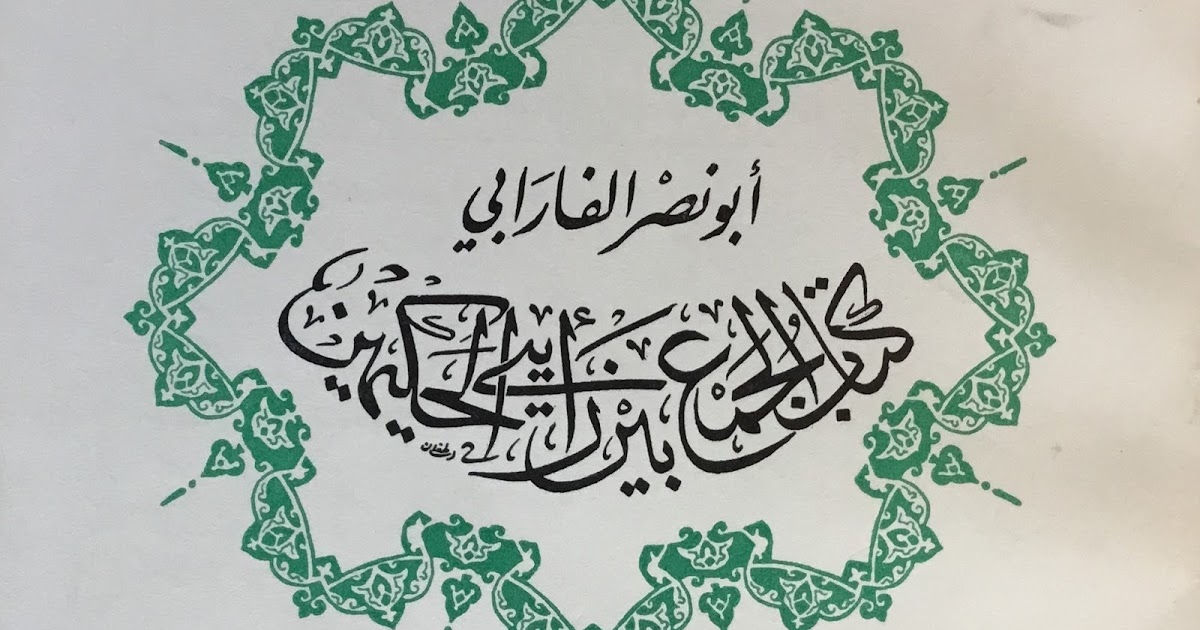 أبو نصْر الفارَابي
كتاب الجمع بين رأيي الحكيمين